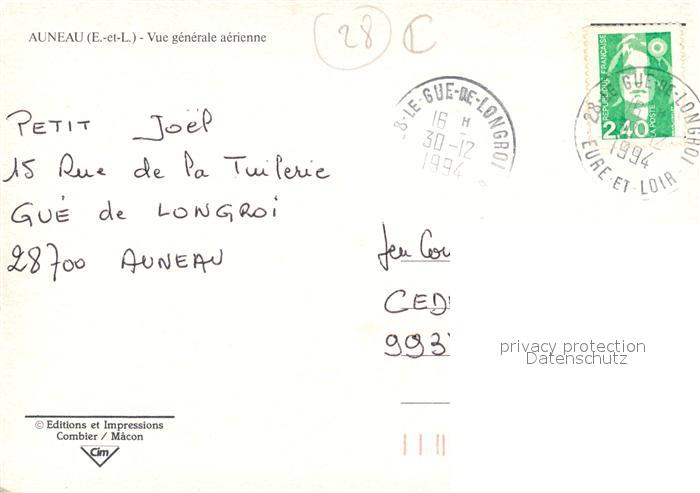 AUNEAU (E.-et-L.) - Vue générale aérienne
28
REPUBLIQUE FRANÇAISE
2,40
LA POSTE
28-LE-GUE-DE-LONGROI
16 H
30-12
1994
28 GUE-DE-LONGROI
1994
EURE-ET-LOIR
PETIT Joël
15 Rue de la Tuilerie
GUÉ de LONGROI
28700 AUNEAU
Jeu
CED
993
privacy protection
Datenschutz
© Editions et Impressions
Combier / Mâcon
Cim